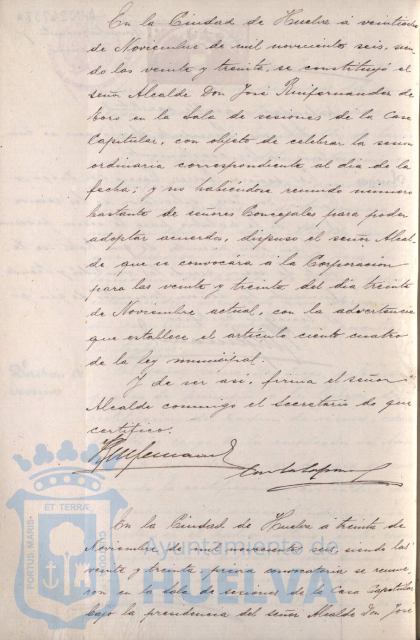 En la Ciudad de Huelva á veintiocho
de Noviembre de mil novecientos seis, sien-
do las veinte y treinta, se constituyó el
señor Alcalde Don José
Toro en la Sala de sesiones de la Casa
Capitular, con objeto de celebrar la sesion
ordinaria correspondiente al dia de la
fecha; y no habiéndose reunido número
bastante de señores Concejales para poder
adoptar acuerdos, dispuso el señor Alcal-
de que se convocára á la Corporacion
para las veinte y treinta del dia treinta
de Noviembre actual, con la advertencia
que establece el artículo ciento cuatro
de la ley municipal.
Y de ser así, firma el señor
Alcalde conmigo el Secretario de que
certifico.
En la Ciudad de Huelva á treinta de
Noviembre de mil novecientos seis, siendo las
veinte y treinta previa convocatoria se reunie-
ron en la Sala de sesiones de la Casa Capitular
bajo la presidencia del señor Alcalde Don José
ET TERRÆ
PORTUS MARIS
CUSTODIA
Ayuntamiento de
HUELVA